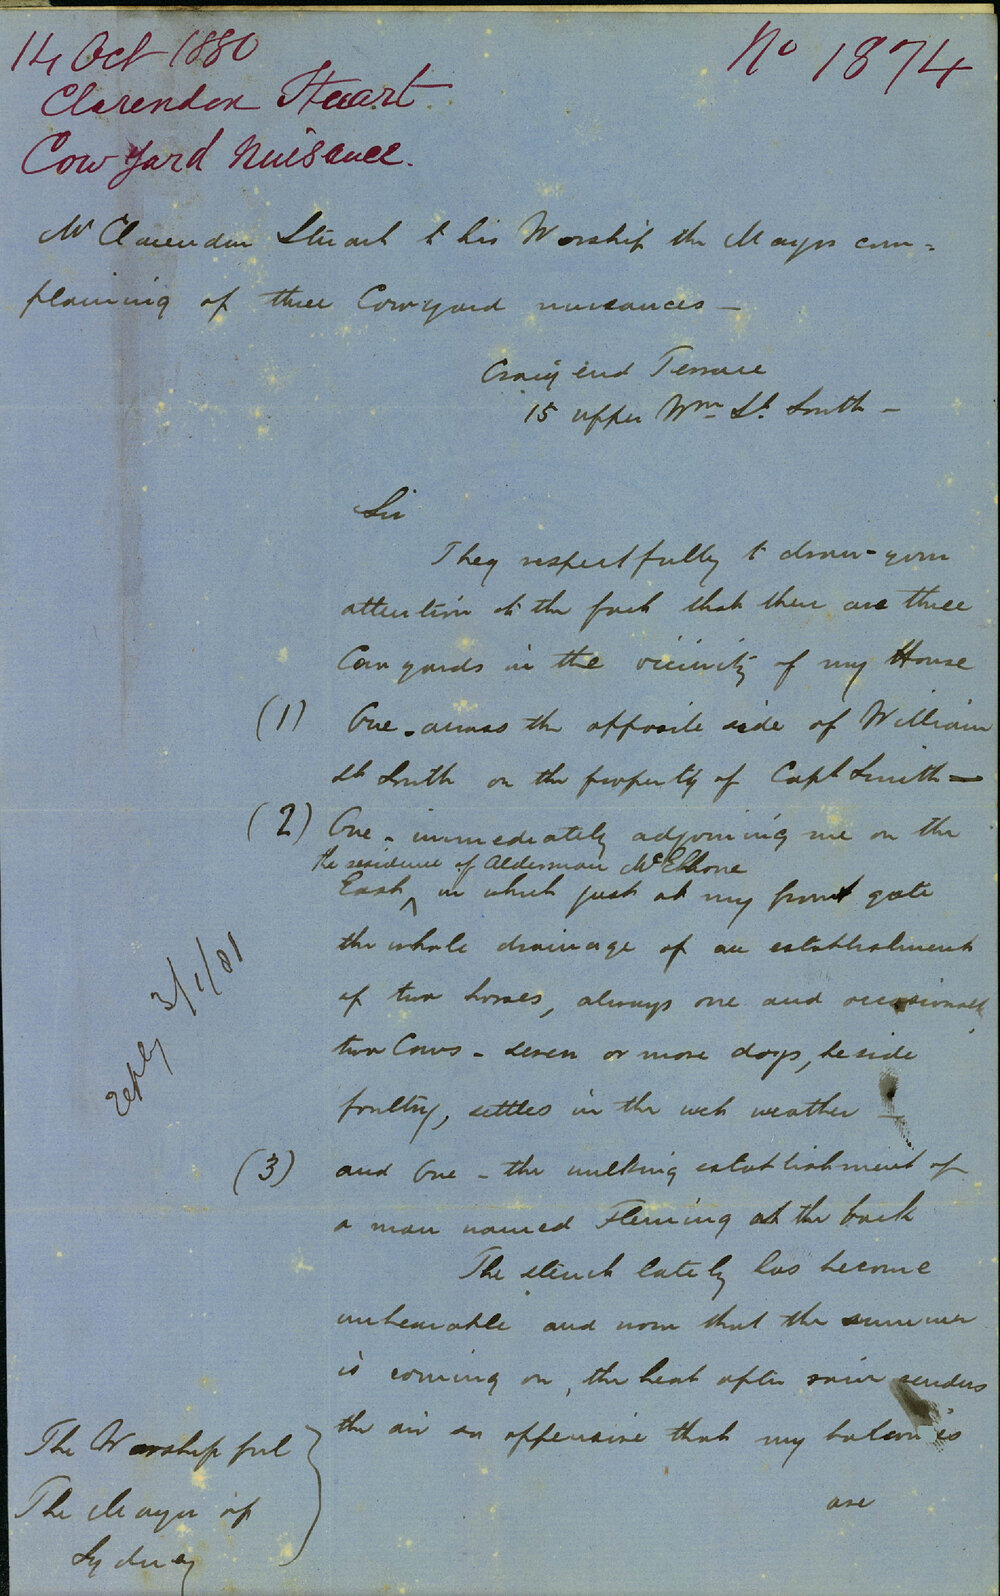 14 Oct 1880
No 1874
Clarendon Stuart
Cow Yard Nuisance.
Mr Clarendon Stuart to his Worship the Mayor com=
plaining of three Cowyard nuisances —
Craig end Terrace
15 upper Wm St. South —
Sir
I beg respectfully to draw your
attention to the fact that there are three
Cow yards in the vicinity of my House
(1) One - across the opposite side of William
St South on the property of Capt Smith —
(2) One - immediately adjoining me on the
the residence of Alderman McElhone
East ^ in which just at my front gate
the whole drainage of an establishment
of two horses, always one and occasionally
two Cows - seven or more dogs, beside
poultry, settles in the wet weather —
(3) and One - the milking establishment of
a man named Fleming at the back
The stench lately has become
unbearable and now that the summer
is coming on, the heat after rain renders
the air so offensive that my balconies
are
reply 3/1/81
The Worshipful
The Mayor of
Sydney